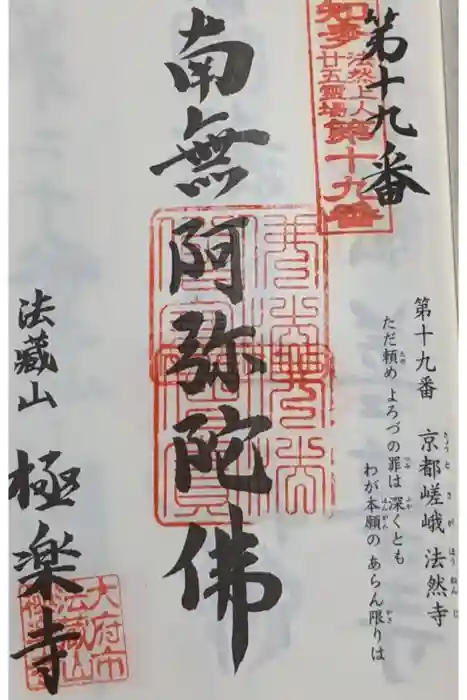 第十九番
知多
法然上人
廿五霊場
第十九番
第十九番 京都嵯峨 法然寺
きょうと さが ほうねんじ
ただ頼め よろづの罪は 深くとも
わが本願の あらん限りは
南無阿弥陀佛
法藏山 極楽寺
大府市
法蔵山
極楽寺